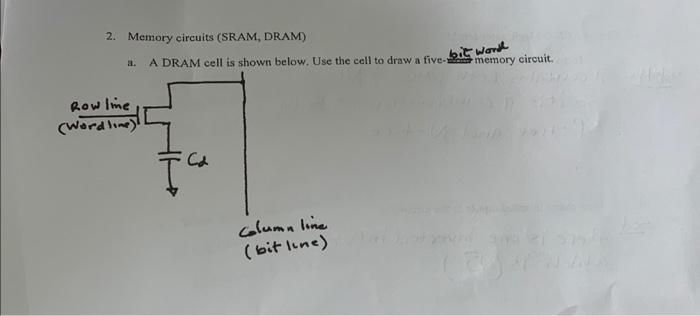 2. Memory circuits (SRAM, DRAM)
bit word
a. A DRAM cell is shown below. Use the cell to draw a five- memory circuit.
Row line
(Word line)
Cd
Column line
(bit line)